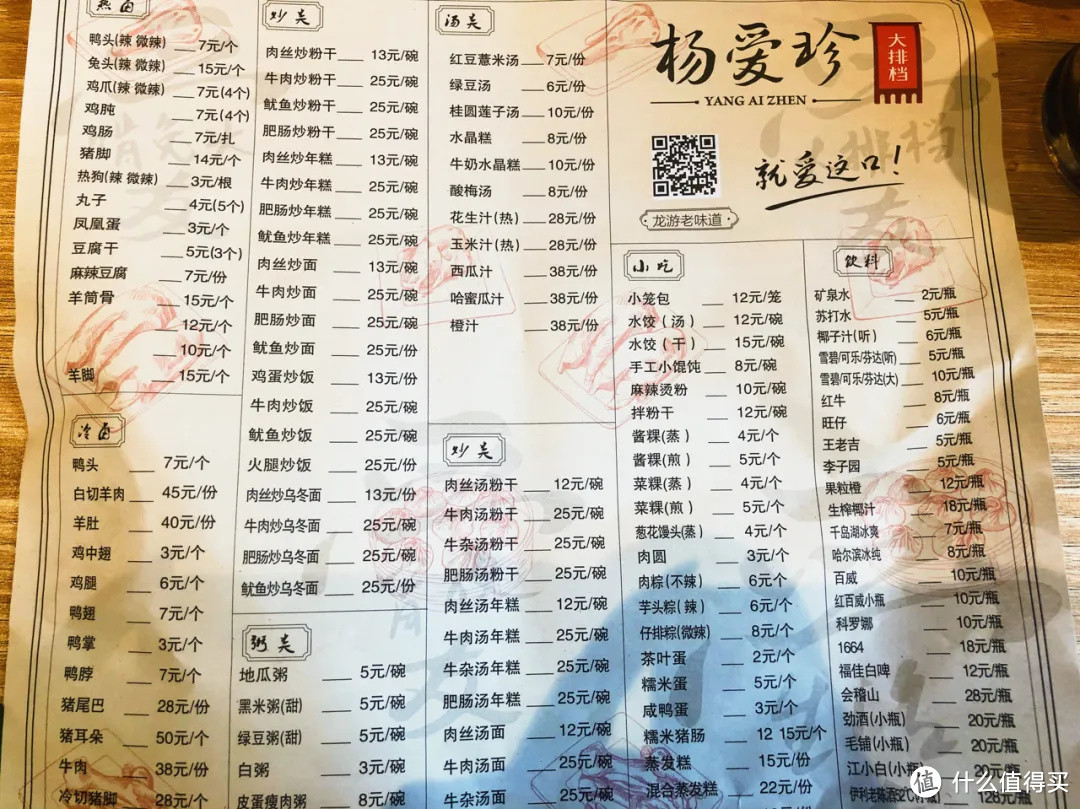 热卤
鸭头(辣 微辣) 7元/个
兔头(辣 微辣) 15元/个
鸡爪(辣 微辣) 7元(4个)
鸡肫 7元(4个)
鸡肠 7元/扎
猪脚 14元/个
热狗(辣 微辣) 3元/根
丸子 4元(5个)
凤凰蛋 3元/个
豆腐干 5元(3个)
麻辣豆腐 7元/份
羊筒骨 15元/个
12元/个
10元/个
羊脚 15元/个
冷卤
鸭头 7元/个
白切羊肉 45元/份
羊肚 40元/份
鸡中翅 3元/个
鸡腿 6元/个
鸭翅 7元/个
鸭掌 3元/个
鸭脖 7元/个
猪尾巴 28元/份
猪耳朵 50元/个
牛肉 38元/份
冷切猪脚 28元/份
炒类
肉丝炒粉干 13元/碗
牛肉炒粉干 25元/碗
鱿鱼炒粉干 25元/碗
肥肠炒粉干 25元/碗
肉丝炒年糕 13元/碗
牛肉炒年糕 25元/碗
肥肠炒年糕 25元/碗
鱿鱼炒年糕 25元/碗
肉丝炒面 13元/碗
牛肉炒面 25元/碗
肥肠炒面 25元/碗
鱿鱼炒面 25元/份
鸡蛋炒饭 13元/份
牛肉炒饭 25元/碗
鱿鱼炒饭 25元/碗
火腿炒饭 25元/份
肉丝炒乌冬面 13元/份
牛肉炒乌冬面 25元/碗
肥肠炒乌冬面 25元/碗
鱿鱼炒乌冬面 25元/份
粥类
地瓜粥 5元/碗
黑米粥(甜) 5元/碗
绿豆粥(甜) 5元/碗
白粥 3元/碗
皮蛋瘦肉粥 8元/碗
汤类
红豆薏米汤 7元/份
绿豆汤 6元/份
桂圆莲子汤 10元/份
水晶糕 8元/份
牛奶水晶糕 10元/份
酸梅汤 8元/份
花生汁(热) 28元/份
玉米汁(热) 28元/份
西瓜汁 38元/份
哈蜜瓜汁 38元/份
橙汁 38元/份
炒类
肉丝汤粉干 12元/碗
牛肉汤粉干 25元/碗
牛杂汤粉干 25元/碗
肥肠汤粉干 25元/碗
肉丝汤年糕 12元/碗
牛肉汤年糕 25元/碗
牛杂汤年糕 25元/碗
肥肠汤年糕 25元/碗
肉丝汤面 12元/碗
牛肉汤面 25元/碗
杨爱珍
大排档
YANG AI ZHEN
就爱这口!
龙游老味道
小吃
小笼包 12元/笼
水饺(汤) 12元/碗
水饺(干) 15元/碗
手工小馄饨 8元/碗
麻辣烫粉 10元/碗
拌粉干 12元/碗
酱粿(蒸) 4元/个
酱粿(煎) 5元/个
菜粿(蒸) 4元/个
菜粿(煎) 5元/个
葱花馒头(蒸) 4元/个
肉圆 3元/个
肉粽(不辣) 6元个
芋头粽(辣) 6元/个
仔排粽(微辣) 8元/个
茶叶蛋 2元/个
糯米蛋 5元/个
咸鸭蛋 3元/个
糯米猪肠 12 15元/个
蒸发糕 15元/份
混合蒸发糕 22元/份
饮料
矿泉水 2元/瓶
苏打水 5元/瓶
椰子汁(听) 6元/瓶
雪碧/可乐/芬达(听) 5元/瓶
雪碧/可乐/芬达(大) 10元/瓶
红牛 8元/瓶
旺仔 6元/瓶
王老吉 5元/瓶
李子园 5元/瓶
果粒橙 12元/瓶
生榨椰汁 18元/瓶
千岛湖冰爽 7元/瓶
哈尔滨冰纯 8元/瓶
百威 10元/瓶
红百威小瓶 10元/瓶
科罗娜 10元/瓶
1664 18元/瓶
福佳白啤 12元/瓶
会稽山 28元/瓶
劲酒(小瓶) 20元/瓶
毛铺(小瓶) 20元/瓶
江小白(小瓶) 20元/瓶
值 什么值得买